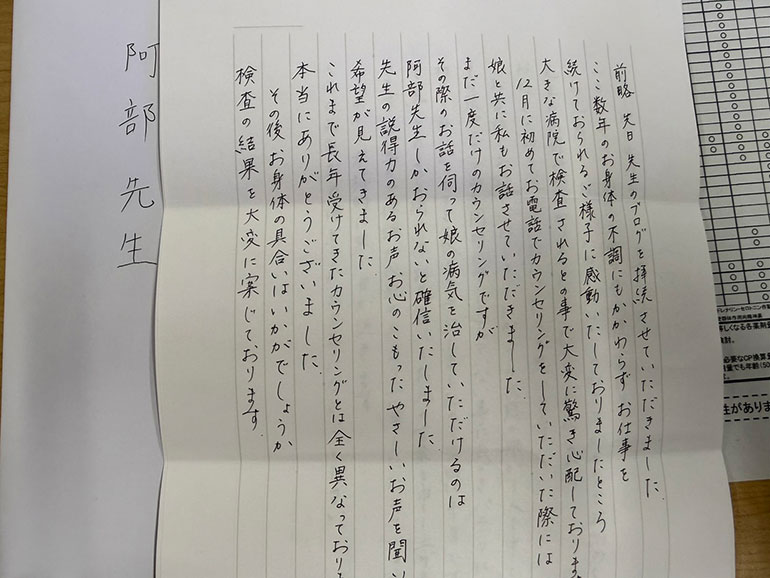 前略 先日 先生のブログを拝読させていただきました
ここ数年のお身体の不調にもかかわらず お仕事を
続けておられるご様子に感動いたしておりましたところ
大きな病院で検査されるとの事で大変に驚き心配しておりま
12月に初めてお電話でカウンセリングをしていただいた際には
娘と共に私もお話させていただきました
まだ一度だけのカウンセリングですが
その際のお話を伺って娘の病気を治していただけるのは
阿部先生しかおられないと確信いたしました
先生の説得力のあるお声 お心のこもった やさしいお声を聞い
希望が見えてきました
これまで長年受けてきたカウンセリングとは全く異なっており
本当にありがとうございました
その後 お身体の具合いはいかがでしょうか
検査の結果を大変に案じております
阿部先生